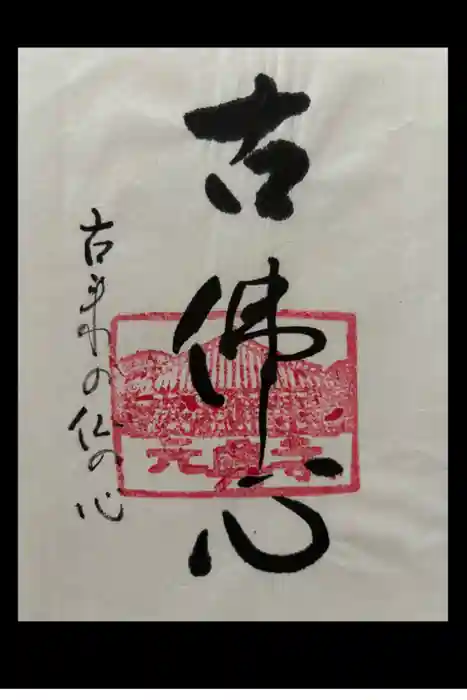 古佛心
古来の仏の心
元興寺